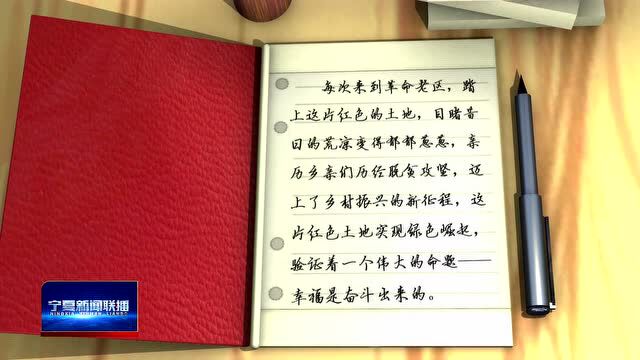 每次来到革命老区，踏
上这片红色的土地，目睹昔
日的荒凉变得郁郁葱葱，亲
历乡亲们历经脱贫攻坚，迈
上了乡村振兴的新征程，这
片红色土地实现绿色崛起，
验证着一个伟大的命题——
幸福是奋斗出来的。
宁夏新闻联播
NINGXIA XINWEN LIANBO